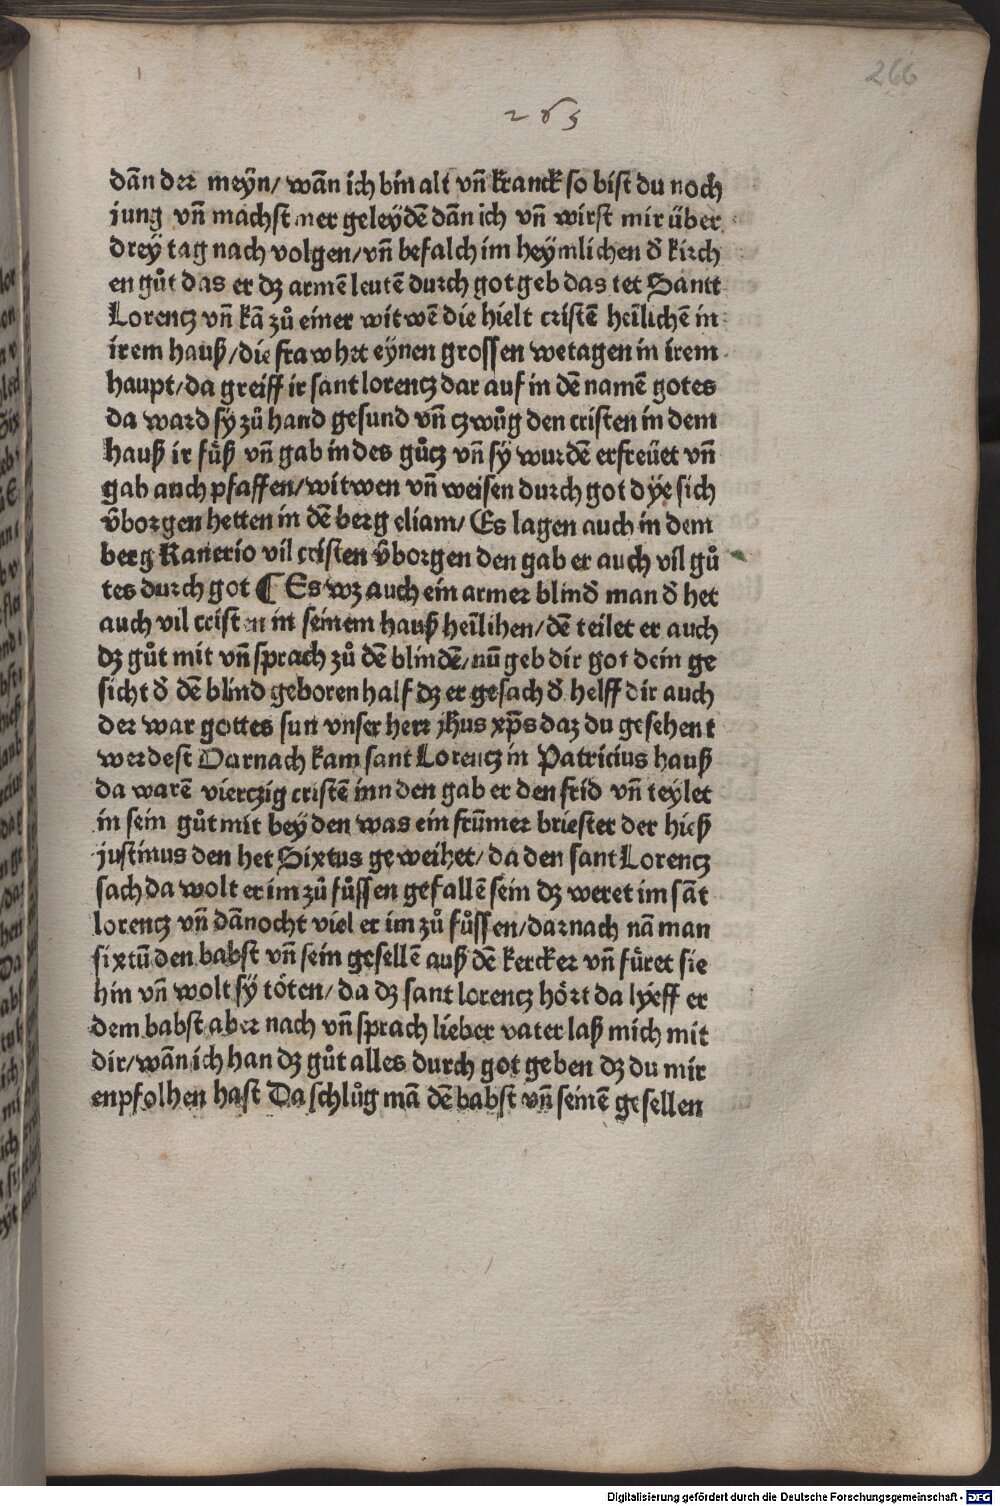 266
265
dañ der meÿn/ wañ ich bin alt vñ kranck so bist du noch
jung vñ machst mer geleÿdē dañ ich vñ wirst mir über
dreÿ tag nach volgen/vñ befalch im heÿmlichen d̄ kirch
en gůt das er dz armē leutē durch got geb das tet Santt
Lorencz vñ kā zů einer witwē die hielt cristē heīlichē in
irem hauß/die fraw het eÿnen grossen wetagen in irem
haupt/da greiff ir sant lorencz dar auf in dē namē gotes
da ward sÿ zů hand gesund vñ czwůg den cristen in dem
hauß ir fůß vñ gab in des gůcz vñ sÿ wurdē erfreüet vñ
gab auch pfaffen/witwen vñ weisen durch got dÿe sich
v̄borgen hetten in dē berg eliam/ Es lagen auch in dem
berg Kanerio vil cristen v̄borgen den gab er auch vil gů
tes durch got ¶ Es wz auch ein armer blind̄ man d̄ het
auch vil cristen in seinem hauß heīlihen/dē teilet er auch
dz gůt mit vñ sprach zů dē blindē/nū geb dir got dein ge
sicht d̄ dē blind geboren half dz er gesach d̄ helff dir auch
der war gottes sun vnser herr jhus xp̄s daz du gesehent
werdest Darnach kam sant Lorencz in Patricius hauß
da warē vierczig cristē inn den gab er den frid vñ teylet
in sein gůt mit bey den was ein frūmer briester der hieß
justinus den het Sixtus geweihet/da den sant Lorencz
sach da wolt er im zů fůssen gefallē sein dz weret im sāt
lorencz vñ dānocht viel er im zů fůssen/darnach nā man
sixtū den babst vñ sein gesellē auß dē kercker vñ füret sie
hin vñ wolt sÿ töten/da dz sant lorencz hört da lÿeff er
dem babst aber nach vñ sprach lieber vater laß mich mit
dir/wañ ich han dz gůt alles durch got geben dz du mir
enpfolhen hast Da schlůg mā dē babst vñ seinē gesellen
Digitalisierung gefördert durch die Deutsche Forschungsgemeinschaft - DFG